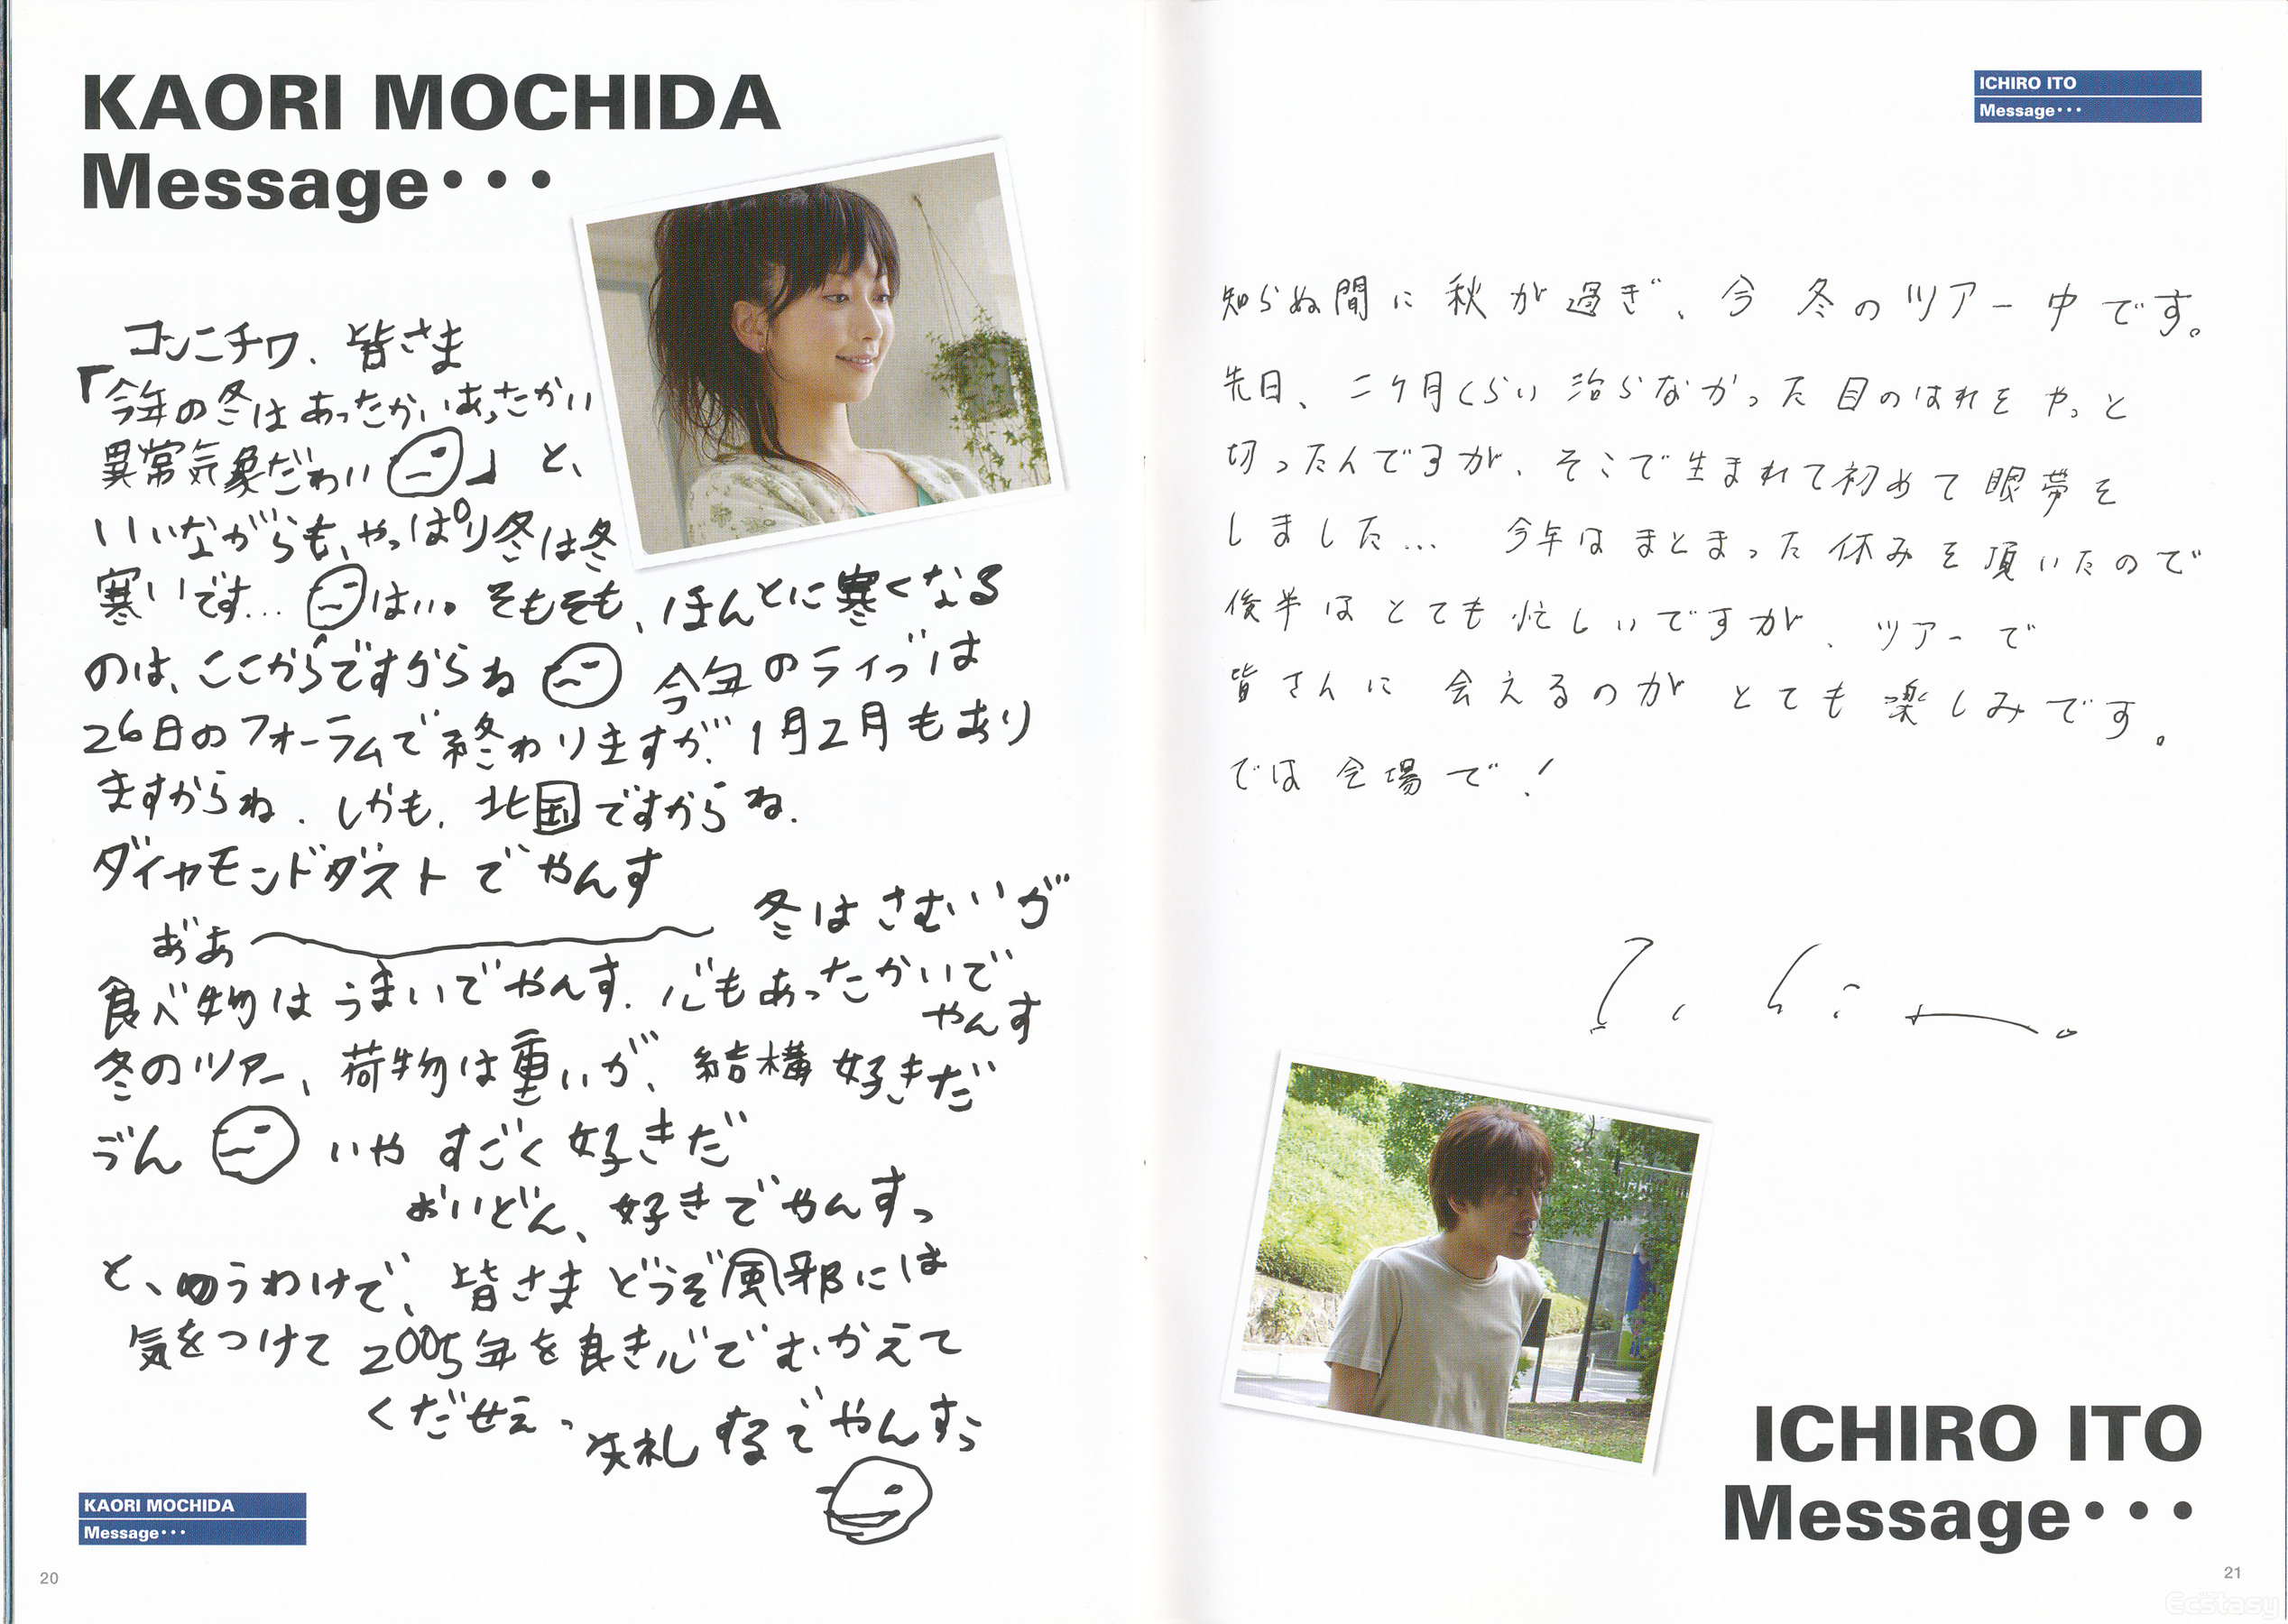 KAORI MOCHIDA
Message・・・
コンニチワ、皆さま
「今年の冬はあったかいあったかい
異常気象だわい」と、
いいながらも、やっぱり冬は冬
寒いです… はい。そもそも、ほんとに寒くなる
のは、ここからですからね 今年のライブは
26日のフォーラムで終わりますが、1月2月もあり
ますからね、しかも、北国ですからね、
ダイヤモンドダストでやんす
あ゛あ〜 冬はさむいが
食べ物はうまいでやんす、心もあったかいで
やんす
冬のツアー、荷物は重いが、結構好きだ
う゛ん いや すごく好きだ
おいどん、好きでやんすっ
と、ゆうわけで、皆さまどうぞ風邪には
気をつけて 2005年を良き心でむかえて
くだせぇっ
失礼するでやんすぅ
KAORI MOCHIDA
Message・・・
20
ICHIRO ITO
Message・・・
知らぬ間に秋が過ぎ、今 冬のツアー中です。
先日、二ヶ月くらい治らなかった目のはれをやっと
切ったんですが、そこで生まれて初めて眼帯を
しました… 今年はまとまった休みを頂いたので
後半はとても忙しいですが、ツアーで
皆さんに会えるのがとても楽しみです。
では会場で!
ICHIRO ITO
Message・・・
21
Ecstasy